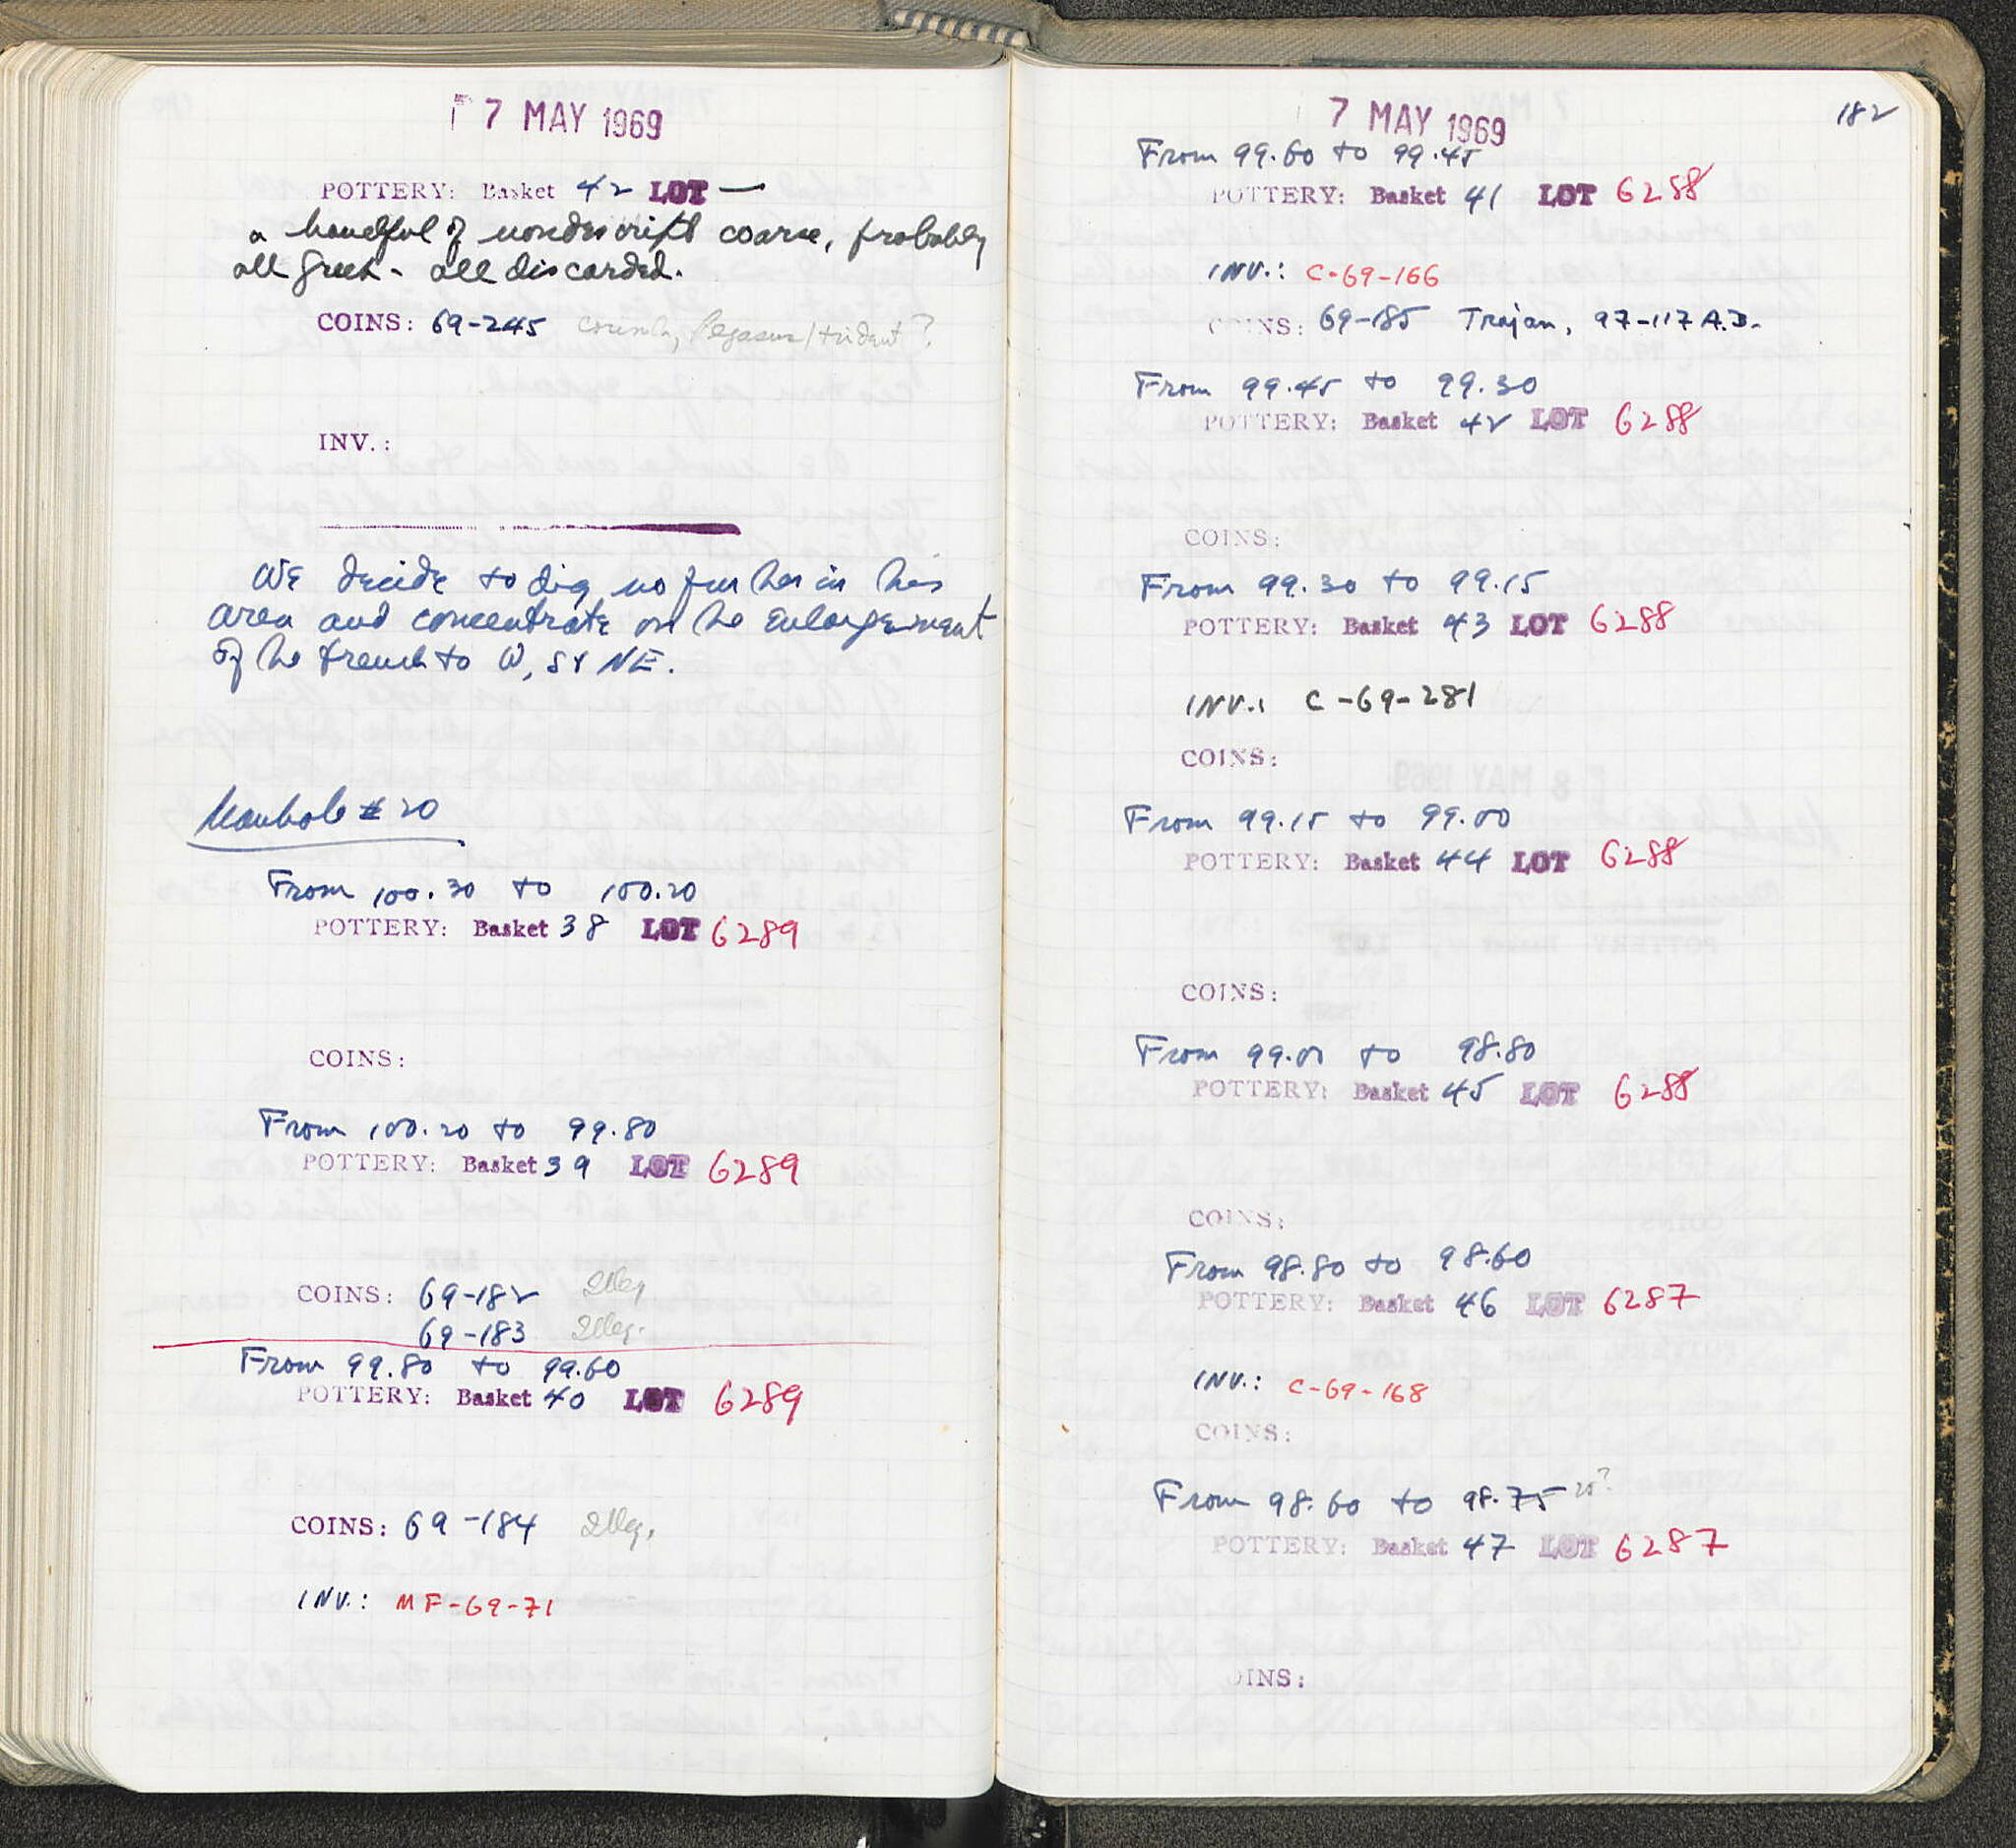 7 MAY 1969
POTTERY: Basket 42 LOT —
a handful of nondescript coarse, probably
all Greek - all discarded.
COINS: 69-245 Corinth, Pegasus/trident?
INV.:
We decide to dig no further in this
area and concentrate on the enlargement
of the trench to W, S & NE.
Manhole # 20
From 100.30 to 100.20
POTTERY: Basket 38 LOT 6289
COINS:
From 100.20 to 99.80
POTTERY: Basket 39 LOT 6289
COINS: 69-182 Illeg
69-183 Illeg.
From 99.80 to 99.60
POTTERY: Basket 40 LOT 6289
COINS: 69-184 Illeg.
INV.: MF-69-71
7 MAY 1969
182
From 99.60 to 99.45
POTTERY: Basket 41 LOT 6288
INV.: C-69-166
COINS: 69-185 Trajan, 97-117 A.D.
From 99.45 to 99.30
POTTERY: Basket 42 LOT 6288
COINS:
From 99.30 to 99.15
POTTERY: Basket 43 LOT 6288
INV.: C-69-281
COINS:
From 99.15 to 99.00
POTTERY: Basket 44 LOT 6288
COINS:
From 99.00 to 98.80
POTTERY: Basket 45 LOT 6288
COINS:
From 98.80 to 98.60
POTTERY: Basket 46 LOT 6287
INV.: C-69-168
COINS:
From 98.60 to 98.75
POTTERY: Basket 47 LOT 6287
OINS: